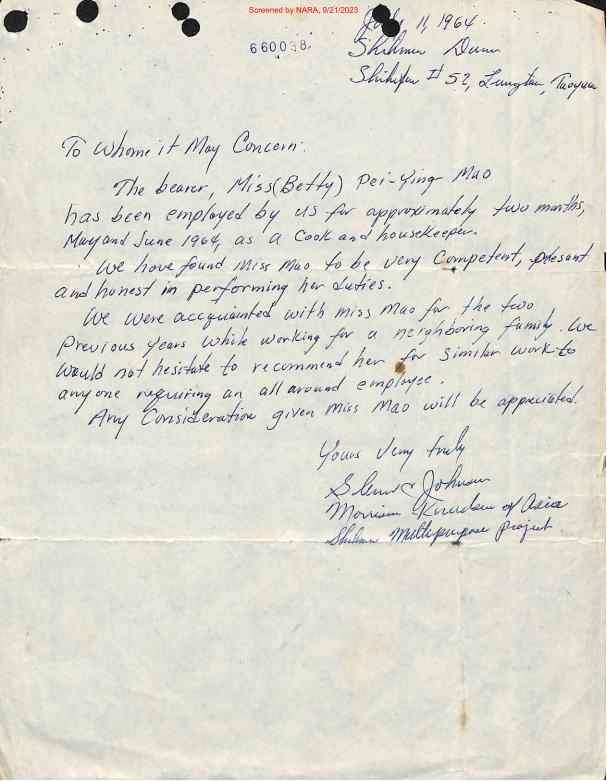 Screened by NARA, 9/21/2023
660038
July 11, 1964
Shihmen
Shihmen # 52, Lungtan, Taoyuan
To Whome it May Concern:
The bearer, Miss (Betty) Pei-Ying Mao
has been employed by us for approximately two months,
May and June 1964, as a Cook and housekeeper.
We have found Miss Mao to be very Competent, plesant
and honest in performing her duties.
We were accquainted with Miss Mao for the two
previous years while working for a neighboring family. We
would not hesitate to recommend her for similar work to
anyone requiring an all around employee.
Any Consideration given Miss Mao will be appreciated.
Yours Very truly
Johnson
Morrison Knudsen of Asia
Shihmen Multipurpose project.